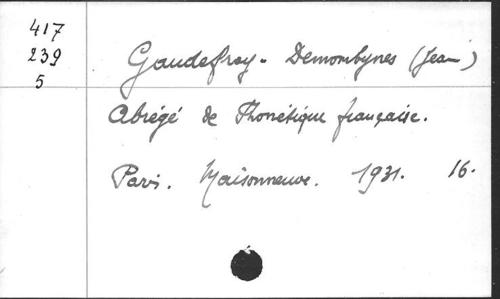 417
239
5
Gaudefroy - Demombynes (Jean)
Abrégé de Phonétique française.
Paris. Maisonneuve. 1931. 16.